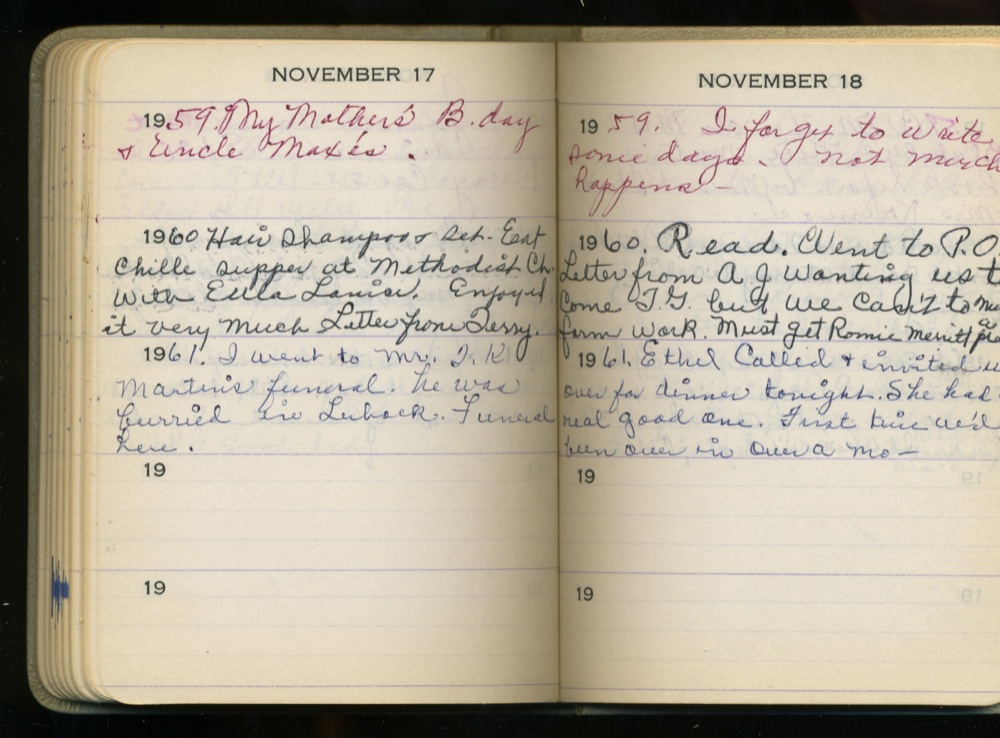 NOVEMBER 17
1959. My Mother's B.day
& Uncle Max's.
1960 Hair Shampoo & Set. Eat
Chille supper at Methodist Ch.
With Eulla Lanier. Enjoyed
it very much Letter from Terry.
1961. I went to Mr. J. K
Martin's funeral. he was
burried in Lubock. Funeral
here.
19
19
NOVEMBER 18
1959. I forget to write
some days. Not much
happens —
1960. Read. Went to P.O
Letter from A. J. Wanting us t
Come T.G. but we can't to
farm work. Must get Romie merritt
1961. Ethel Called & invited u
over for dinner tonight. She had
real good one. First time we'd
been over in over a mo —
19
19